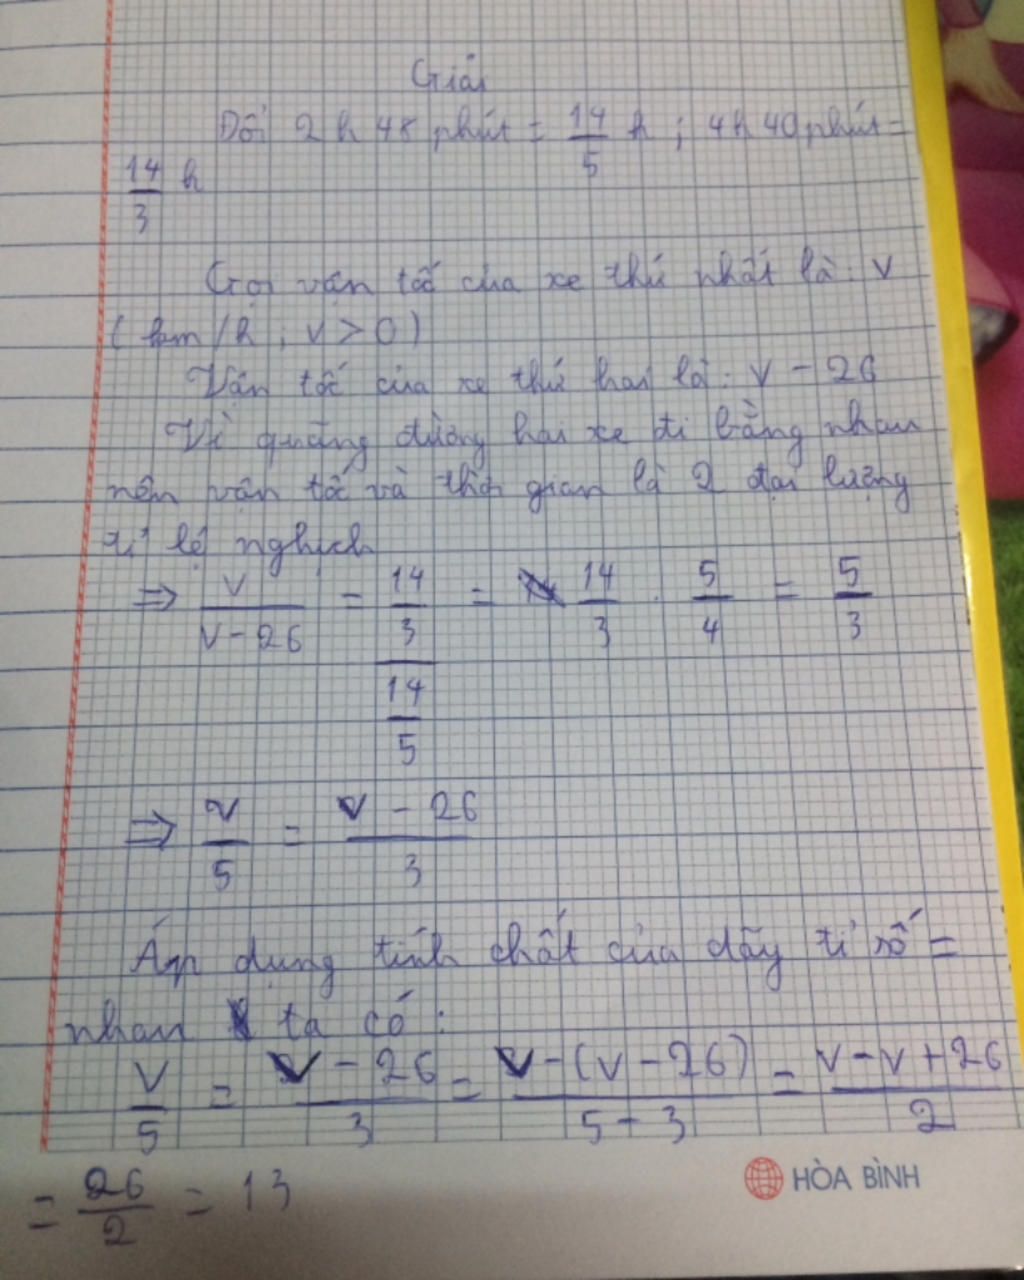 Giải
Đổi 2 h 48 phút = 14/5 h ; 4h 40 phút =
14/3 h
Gọi vận tốc của xe thứ nhất là : v
( km/h ; v > 0 )
Vận tốc của xe thứ hai là : v - 26
Vì quãng đường hai xe đi bằng nhau
nên vận tốc và thời gian là 2 đại lượng
tỉ lệ nghịch
=> v/(v - 26) = (14/3)/(14/5) = 14/3 . 5/4 = 5/3
=> v/5 = (v - 26)/3
Áp dụng tính chất của dãy tỉ số =
nhau ta có :
v/5 = (v - 26)/3 = (v - (v - 26))/(5 - 3) = (v - v + 26)/2
= 26/2 = 13
HÒA BÌNH